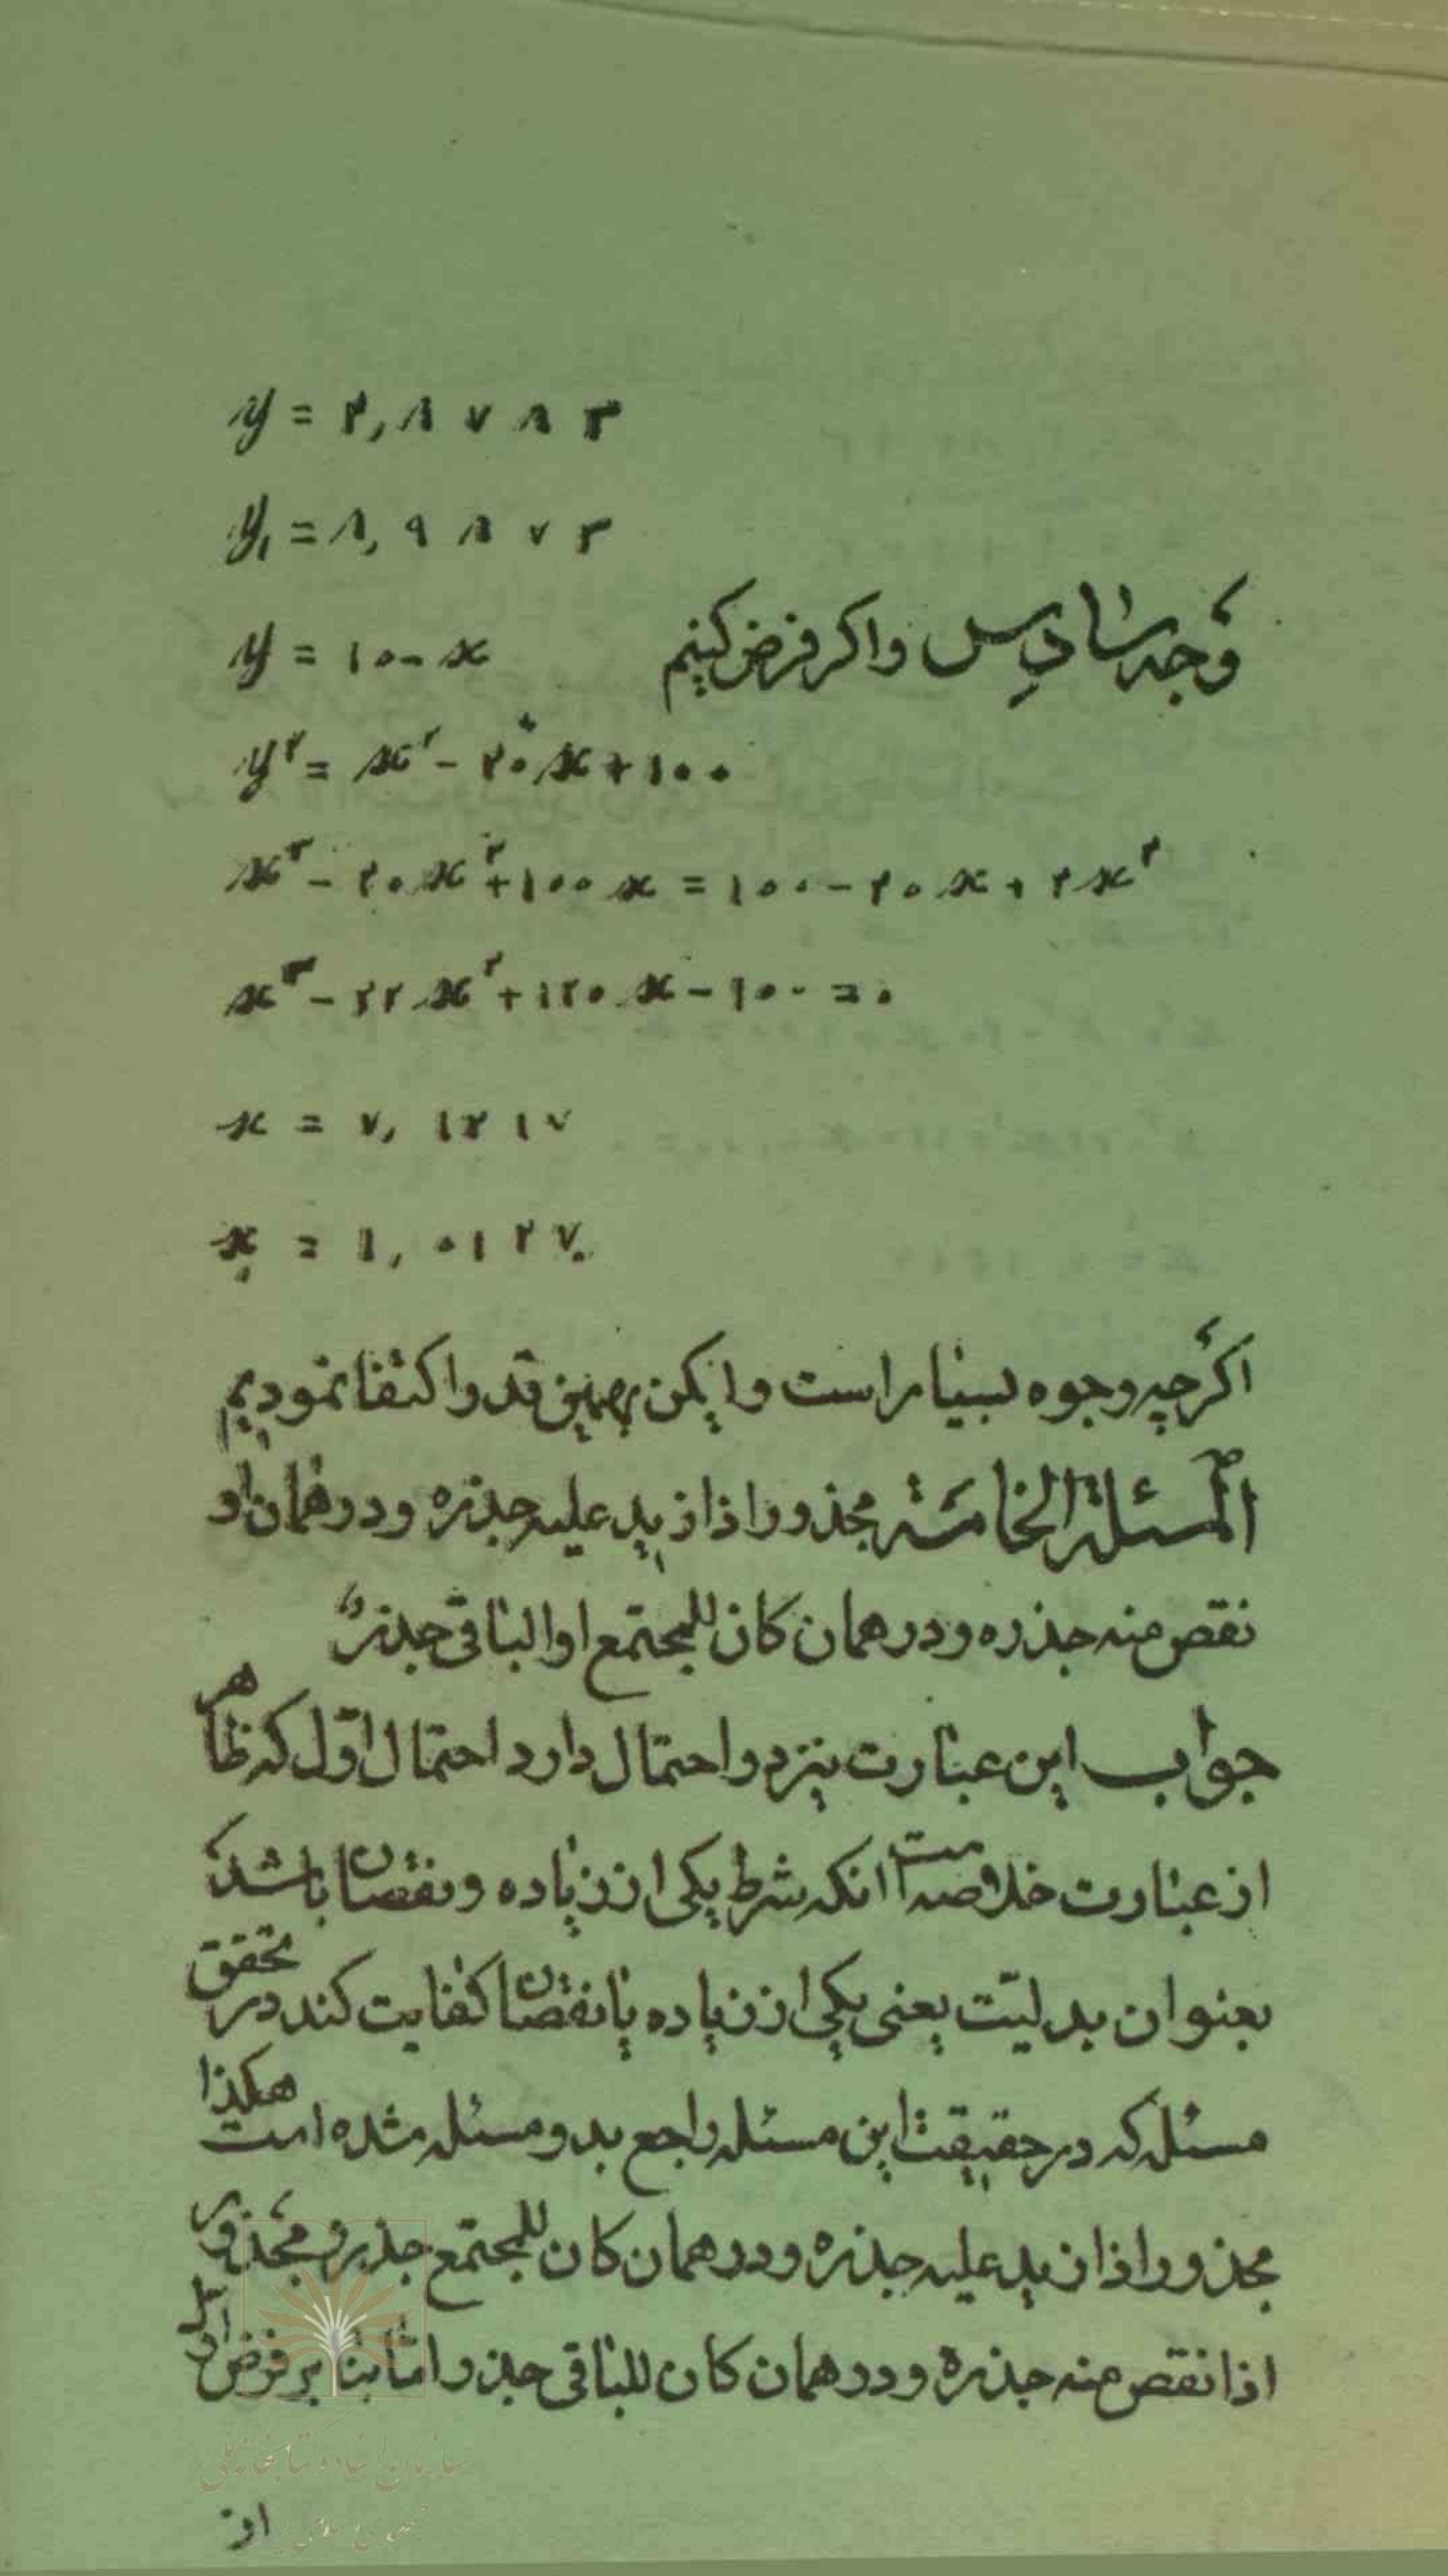 y = ۲,۸۷۸۳
y₁ = ۸,۹۸۷۳
وجه سادس واکر فرض کنیم y = ۱۰-x
y² = x² - ۲۰x + ۱۰۰
x³ - ۲۰x² + ۱۰۰x = ۱۰۰ - ۲۰x + ۲x²
x³ - ۲۲x² + ۱۲۰x - ۱۰۰ = ۰
x = ۷,۱۲۱۷
x₁ = ۱,۰۱۲۷
اکرچه وجوه بسیار است ولیکن بهمین قدر اکتفا نمودیم
المسئلة الخامسة مجذور اذا زید علیه جذره ودرهمان او
نقص منه جذره ودرهمان کان للمجتمع او الباقی جذر
جواب این عبارت نیز دو احتمال دارد احتمال اول که ظاهر
از عبارت خلاصه است انکه شرط یکی از زیاده ونقصان باشد
بعنوان بدلیّت یعنی یکی از زیاده یا نقصان کفایت کند در تحقق
مسئله که در حقیقت این مسئله راجع بدو مسئله شده است هکذا
مجذور اذا زید علیه جذره ودرهمان کان للمجتمع جذر ومجذور
اذا نقص منه جذره ودرهمان کان للباقی جذر واما بنا بر فرض اول
از
سازمان اسناد و کتابخانه ملی
جمهوری اسلامی